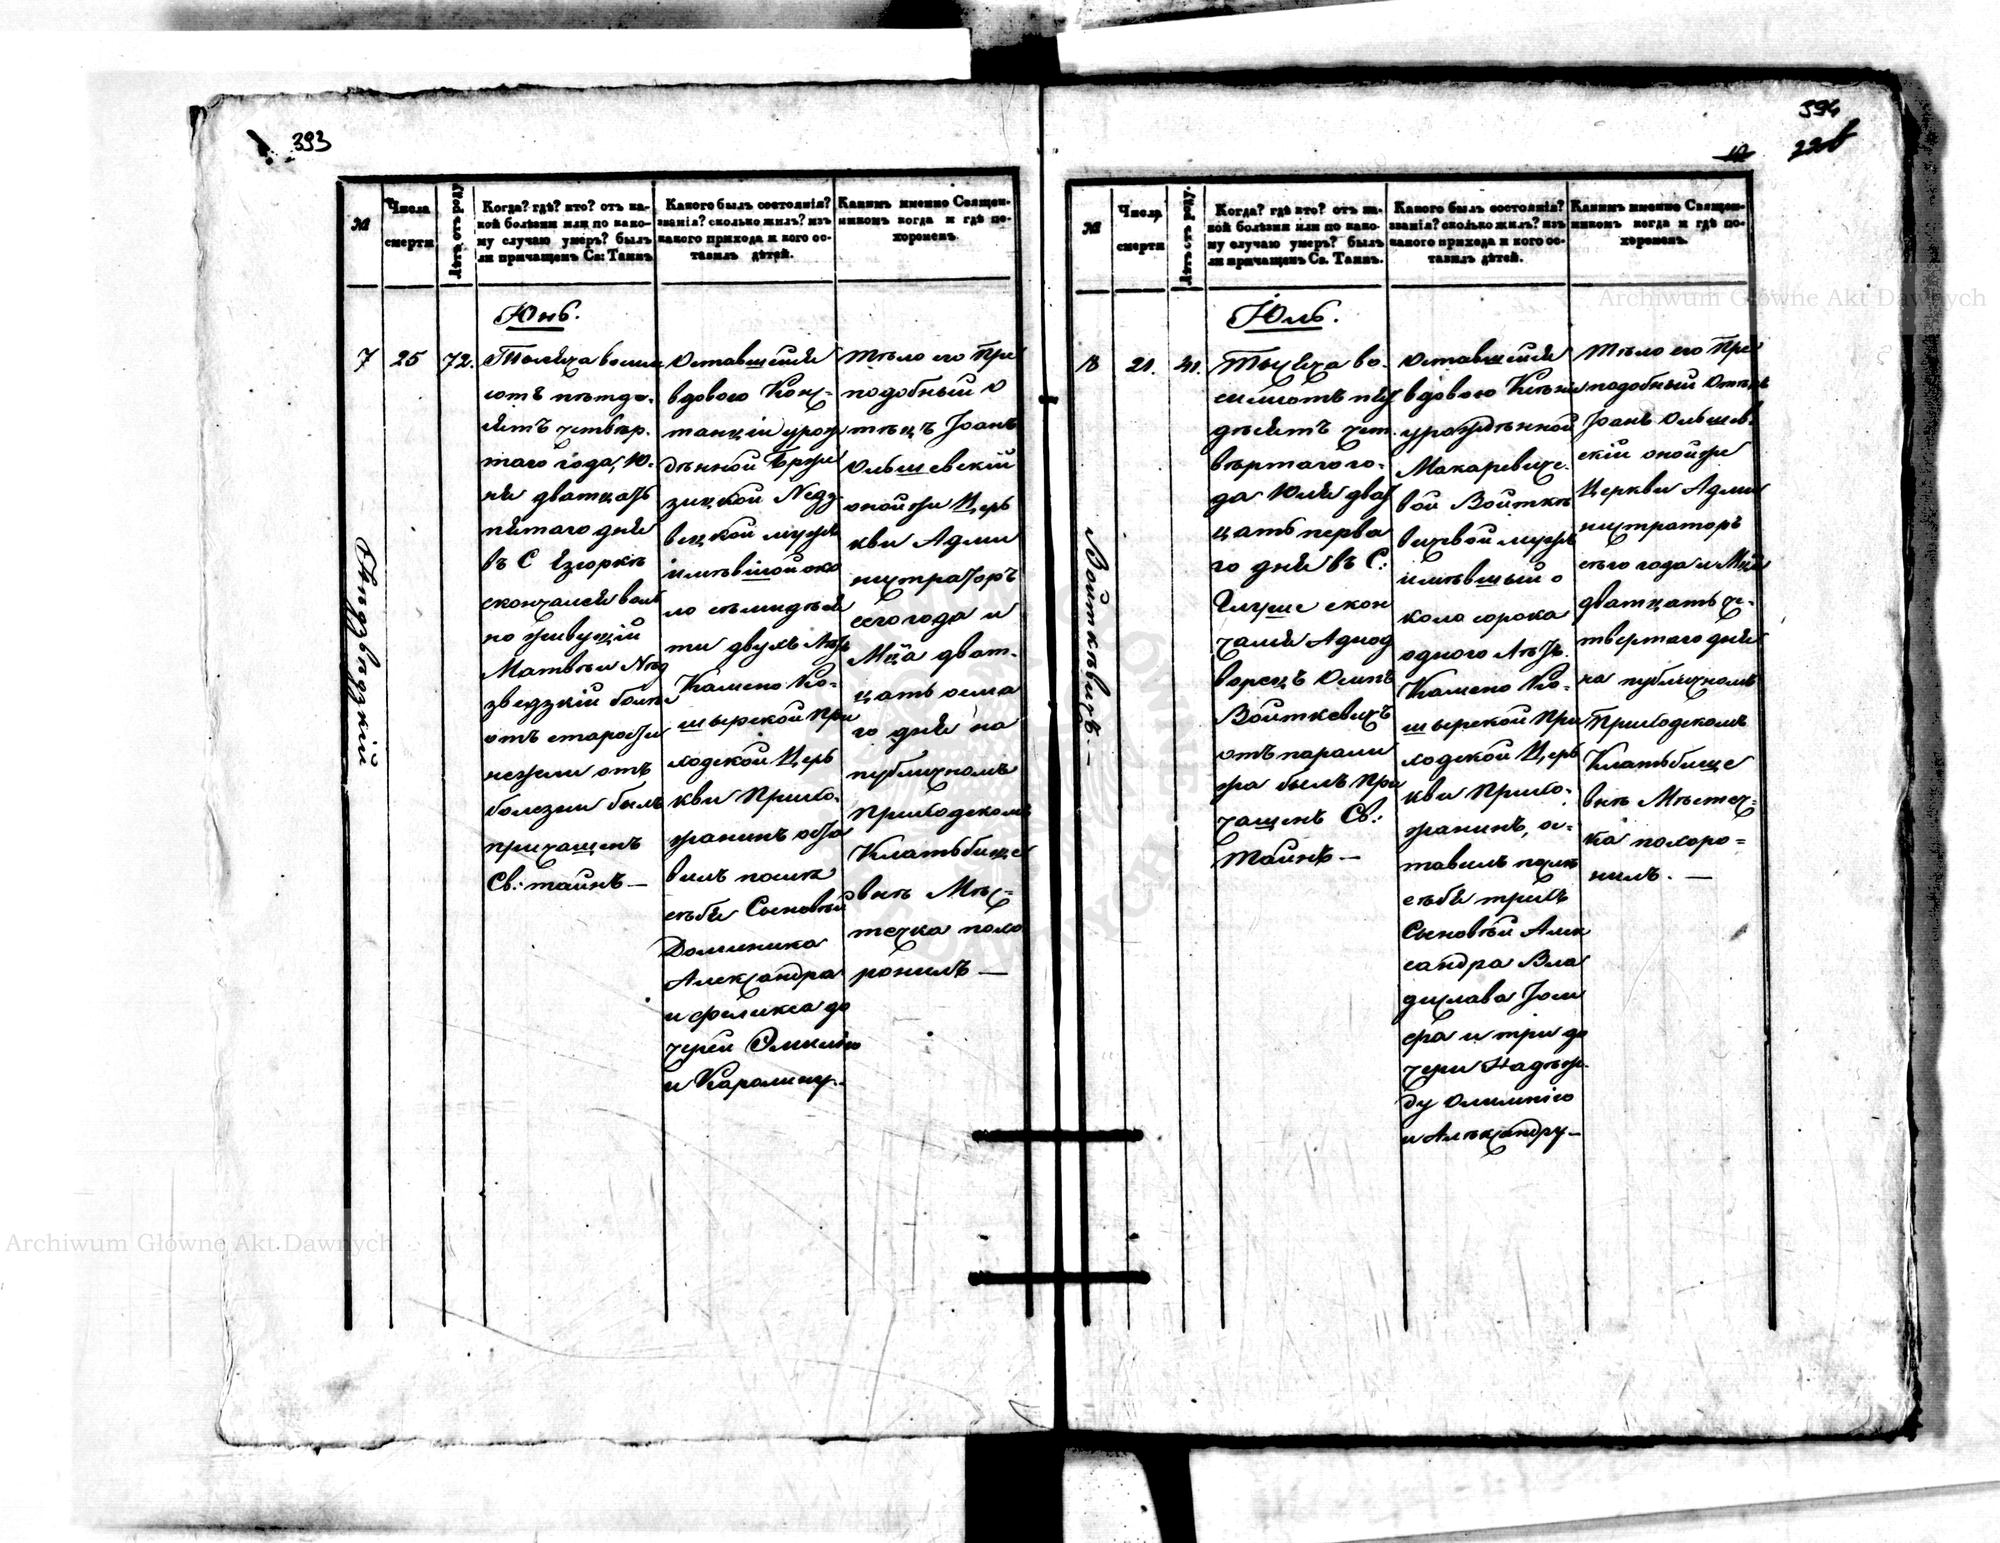 393
№
Числа
смерти
Лѣтъ отъ роду
Когда? гдѣ? кто? отъ ка-
кой болѣзни или по како-
му случаю умеръ? былъ
ли причащенъ Св: Таинъ
Какого былъ состоянія?
званія? сколько жилъ? изъ
какого прихода и кого ос-
тавилъ дѣтей.
Какимъ именно Священ-
никомъ когда и гдѣ по-
хороненъ.
Юнь.
7
25
72.
Тысяча восим
сотъ пѣтде-
сятъ четвѣр-
таго года, Ю-
ня дватцать
пятаго дня
въ С Езюркѣ
скончался воль
но живущій
Матвѣи Нѣд
звѣдзкій болѣе
отъ старости
нежели отъ
болезни былъ
причащенъ
Св: таинъ —
Оставшейся
вдовою Конс-
танціи урож
дѣнной Бржо
зицкой Недз-
вецкой мужъ
имѣвшой око
ло сѣмидѣся
ти двухъ лѣтъ
Камено Ко-
шырской При
ходской Церь
кви Прихо-
жанинъ оста
вилъ послѣ
сѣбя Сыновѣй
Доминика
Александра
и Феликса до
черей Эмилію
и Каролину.
Тѣло его Пре
подобный О
тѣцъ Іоанъ
Ольшевскій
оной же Церь
кви Адми
нистраторъ
сего года и
Мца дват-
цать осма
го дня на
публичномъ
Приходскомъ
Клатьбище
внѣ Мѣс-
течка похо
ронилъ —
Нѣдзвѣдзкій
394
10
228
№
Числа
смерти
Лѣтъ отъ роду.
Когда? гдѣ кто? отъ ка-
кой болѣзни или по како-
му случаю умеръ? былъ
ли причащенъ Св. Таинъ.
Какого былъ состоянія?
званія? сколько жилъ? изъ
какого прихода и кого ос-
тавилъ дѣтей.
Какимъ именно Священ-
никомъ когда и гдѣ по-
хороненъ.
Юль.
8
21.
41.
Тысяча во-
симсотъ пят
дѣсятъ чет-
вѣртаго го-
да Юля дват
цать перва
го дня въ С:
Глуше скон
чался Аднод
ворецъ Осипъ
Войткевичъ
отъ парали
жа былъ При
чащенъ Св:
Таинъ —
Оставшейся
вдовою
урождѣнной
Макаревиче-
вой Войткѣ
вичвой мужъ
имѣвшый о
коло сорока
одного лѣтъ
Камено Ко-
шырской При
ходской Церь
кви Прихо-
жанинъ, ос-
тавилъ послѣ
сѣбя трихъ
Сыновѣй Алек
сандра Вла
дислава Іоси
фа и три до
чери Надѣж-
ду Олимпію
и Алѣксандру —
Тѣло его Пре
подобный Отѣцъ
Іоанъ Ольшев-
скій оной же
Церкви Адми
нистраторъ
сѣго года и Мца
дватцать че-
твертаго дня
на публичномъ
Приходскомъ
Клатьбище
внѣ Мѣстеч-
ка похоро-
нилъ. —
Войткѣвичъ. —
Archiwum Główne Akt Dawnych
Archiwum Główne Akt Dawnych